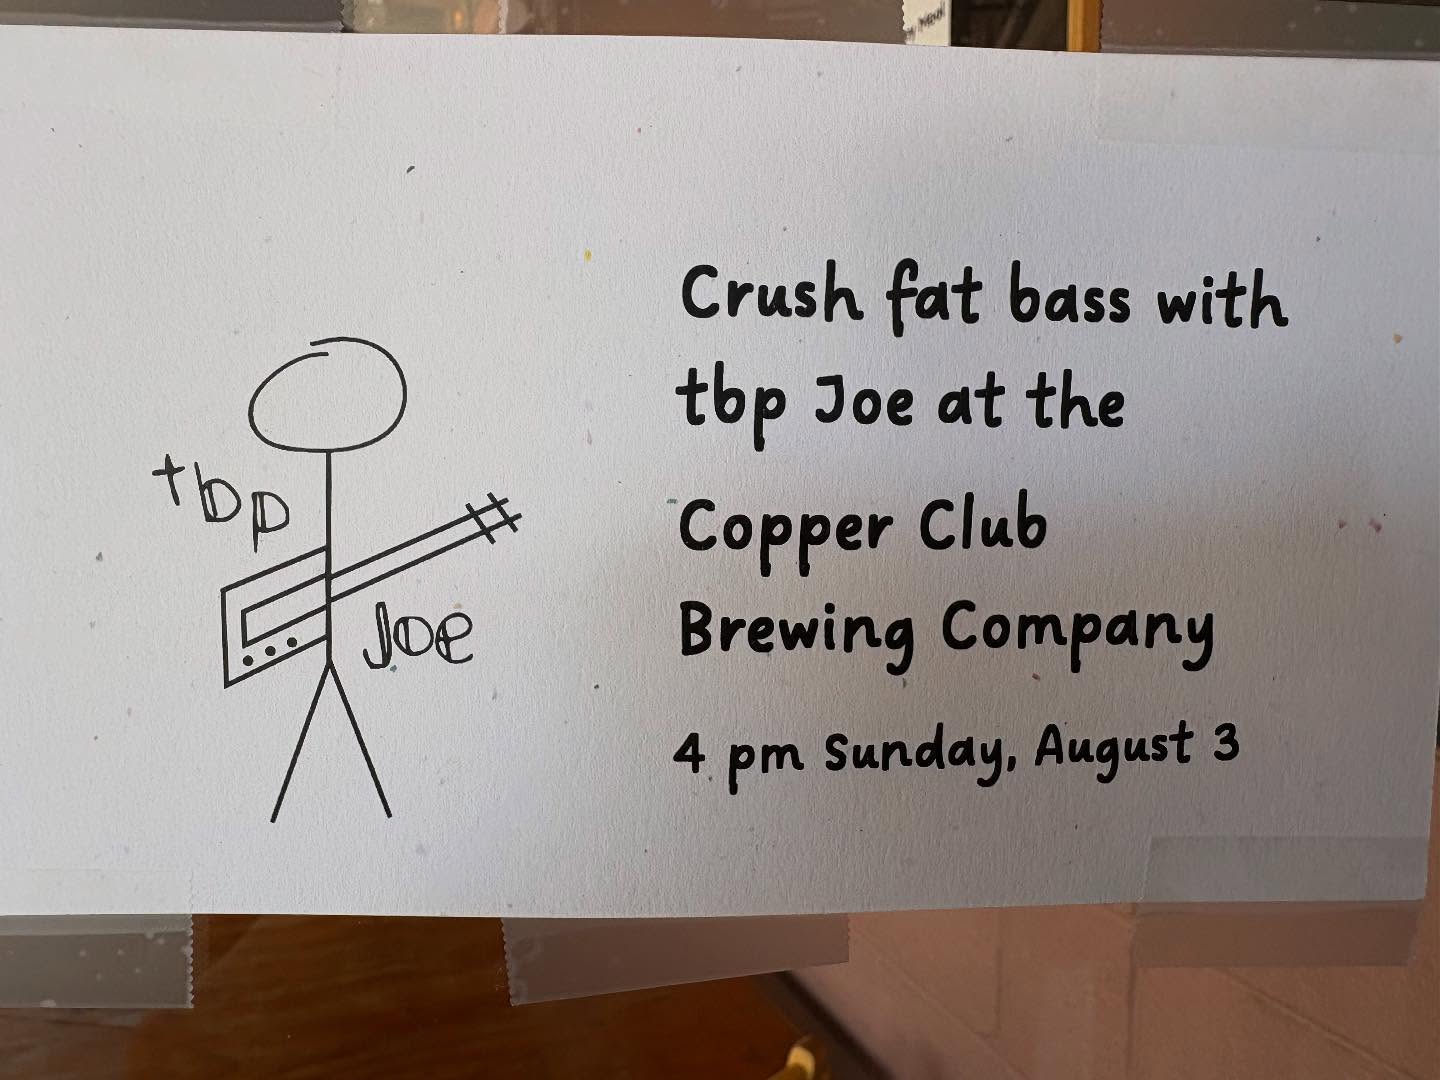 Crush fat bass with
tbp Joe at the
Copper Club
Brewing Company
4 pm Sunday, August 3
tbp
Joe